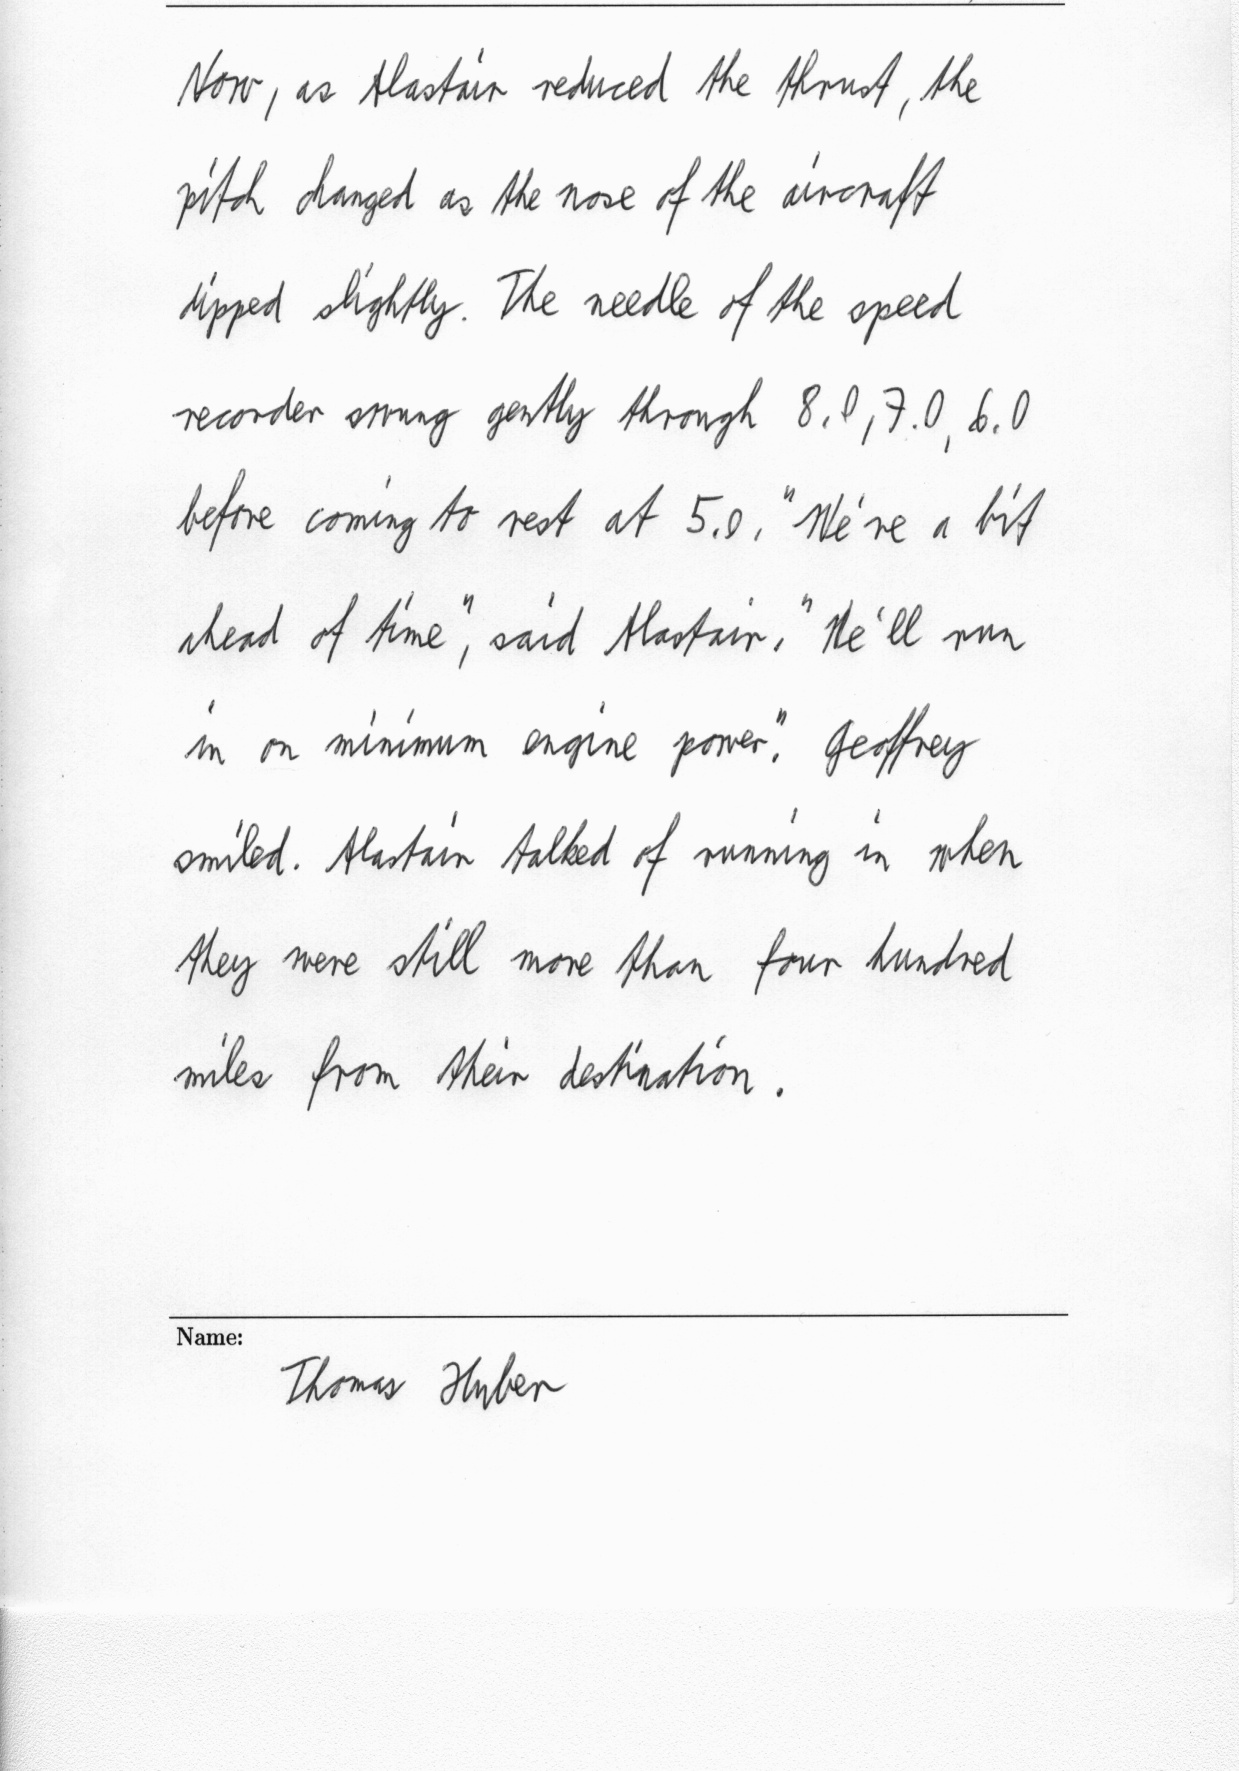 Now, as Alastair reduced the thrust, the
pitch changed as the nose of the aircraft
dipped slightly. The needle of the speed
recorder swung gently through 8.0, 7.0, 6.0
before coming to rest at 5.0. "We're a bit
ahead of time", said Alastair. "We'll run
in on minimum engine power". Geoffrey
smiled. Alastair talked of running in when
they were still more than four hundred
miles from their destination.
Name:
Thomas Hyber